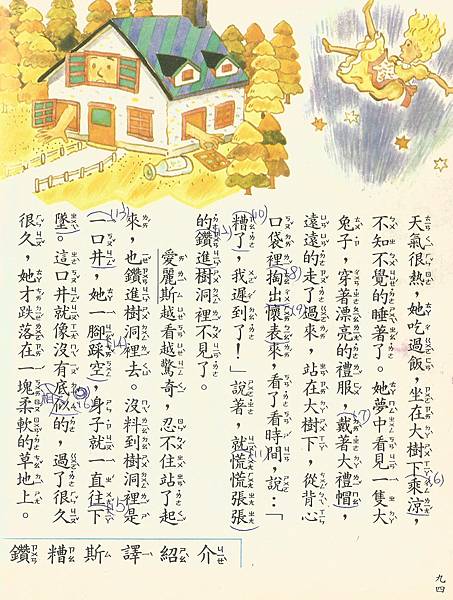 天氣很熱，她吃過飯，坐在大樹下乘涼，
不知不覺的睡著了。她夢中看見一隻大
兔子，穿著漂亮的禮服，戴著大禮帽，
遠遠的走了過來，站在大樹下，從背心
口袋裡掏出懷表來，看了看時間，說：「
糟了，我遲到了！」說著，就慌慌張張
的鑽進樹洞裡不見了。
愛麗斯越看越驚奇，忍不住站了起
來，也鑽進樹洞裡去。沒料到樹洞裡是
一口井，她一腳踩空，身子就一直往下
墜。這口井就像沒有底似的，過了很久
很久，她才跌落在一塊柔軟的草地上。
介紹譯斯糟鑽
九四
(6)
(7)
(8)
(10)
(13)